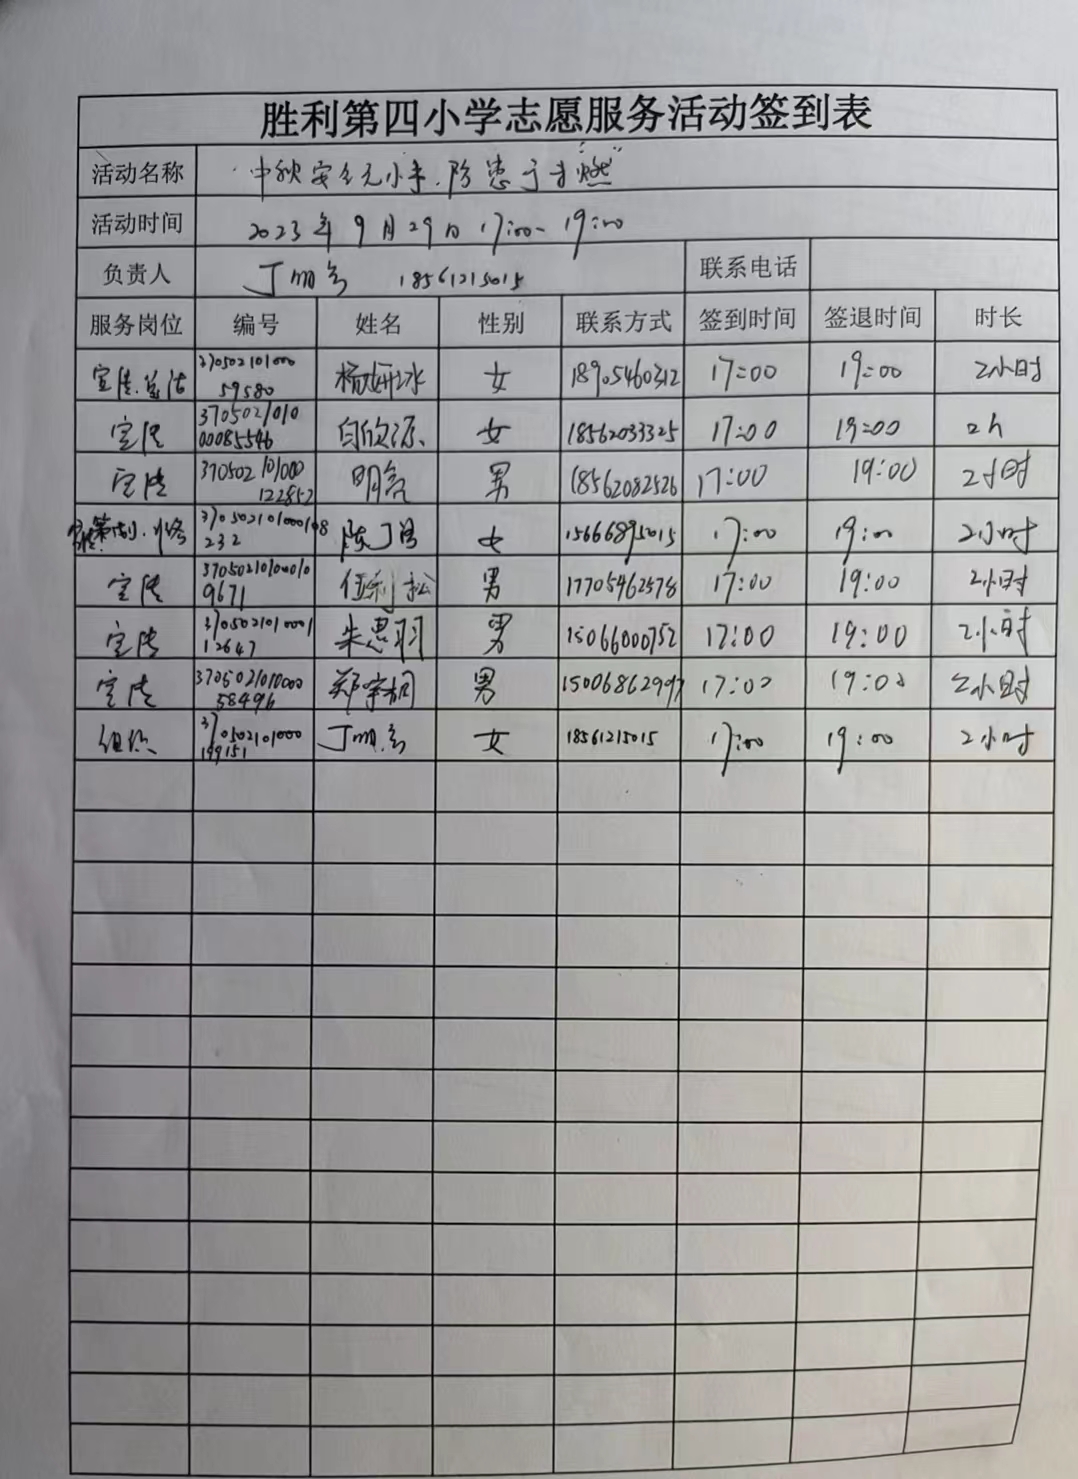 胜利第四小学志愿服务活动签到表
活动名称 “中秋安全无小事.防患于未燃”
活动时间 2023年9月29日 17:00-19:00
负责人 丁 18561215015 联系电话
服务岗位 编号 姓名 性别 联系方式 签到时间 签退时间 时长
宣传. 37050210100059580 杨妍冰 女 18905460312 17:00 19:00 2小时
宣传 37050210100085546 白欣源 女 18562033325 17:00 19:00 2h
宣传 370502101000122852 明亮 男 18562082526 17:00 19:00 2小时
策划. 370502101000108232 陈丁 女 15666895015 17:00 19:00 2小时
宣传 370502101000109671 任利松 男 17705462578 17:00 19:00 2小时
宣传 370502101000112647 朱思羽 男 15066000752 17:00 19:00 2小时
宣传 37050210100058496 郑宇桐 男 15006862997 17:00 19:00 2小时
组织 370502101000199151 丁 女 18561215015 17:00 19:00 2小时